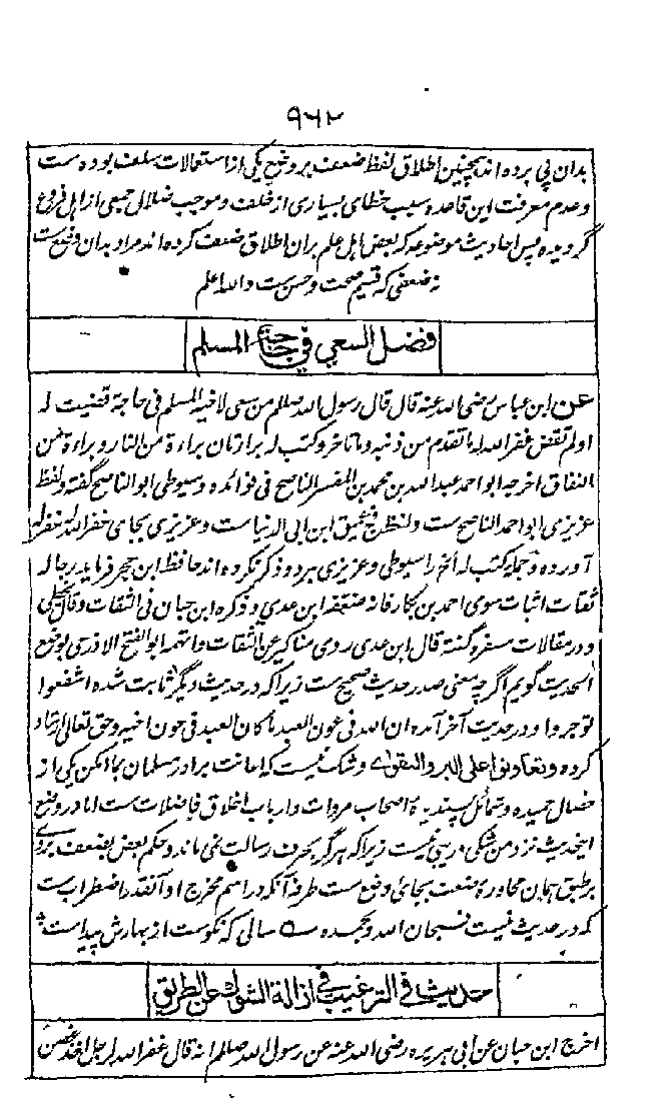 ۹۶۲
بدان پی برده اند همچنین اطلاق لفظ ضعف بر وضع یکی از استعمالات سلف بوده ست
و عدم معرفت این قاعده سبب خطای بسیاری از خلف و موجب ضلال جمعی از اهل فروع
گردیده پس احادیث موضوعه که بعض اهل علم بران اطلاق ضعف کرده اند مراد بدان وضع ست
نه ضعفی که قسیم صحت و حسن ست والله اعلم
فضل السعي في حاجة المسلم
عن ابن عباس رضی الله عنه قال قال رسول الله صلعم من سعی لاخیه المسلم فی حاجة قضیت له
اولم تقض غفر الله له ما تقدم من ذنبه وما تاخر وکتب له براءتان براءة من النار وبراءة من
النفاق اخرجه ابو احمد عبدالله بن محمد بن المفسر الناصح فی فوائده و سیوطی ابو الناصح گفته ولفظ
عزیزی ابو احمد الناصح ست و لفظ ابن ابی الدنیا ست و عزیزی بجای غفر الله له غفر له
آورده و جمله کتب له الخ را سیوطی و عزیزی هر دو ذکر نکرده اند حافظ ابن حجر فرماید رجاله
ثقات اثبات سوی احمد بن بکار فانه ضعفه ابن عدی و ذکره ابن حبان فی الثقات وقال یخطی
و در مقالات مسفره گفته قال ابن عدی روی مناکیر عن الثقات واتهمه ابو الفتح الازدی بوضع
الحدیث گویم اگرچه معنی صدر حدیث صحیح ست زیرا که در حدیث دیگر ثابت شده اشفعوا
توجروا و در حدیث آخر آمده ان الله فی عون العبد ما کان العبد فی عون اخیه وحق تعالی ارشاد
کرده وتعاونوا علی البر والتقوی و شک نیست که اعانت برادر مسلمان بما امکن یکی از
خصال حمیده و شمائل پسندیدۀ اصحاب مروات و ارباب اخلاق فاضلات ست اما در وضع
اینحدیث نزد من شکی و ریبی نیست زیرا که هرگز بحرف رسالت نمی ماند و حکم بعض بضعف بروی
بر طبق همان محاورۀ ضعف بجای وضع ست طرفه آنکه در اسم مخرج او آنقدر اضطراب ست
که در حدیث نیست فسبحان الله وبحمده سالی که نکوست از بهارش پیداست
حديث في الترغيب في ازالة الشوك عن الطريق
اخرج ابن حبان عن ابی هریره رضی الله عنه عن رسول الله صلعم انه قال غفر الله لرجل اخذ غصن